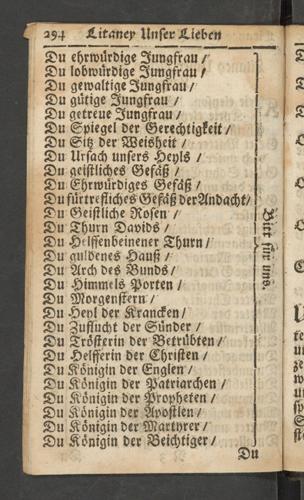 294 Litaney Unser Lieben
Du ehrwürdige Jungfrau /
Du lobwürdige Jungfrau /
Du gewaltige Jungfrau /
Du gütige Jungfrau /
Du getreue Jungfrau /
Du Spiegel der Gerechtigkeit /
Du Sitz der Weisheit /
Du Ursach unsers Heyls /
Du geistliches Gefäß /
Du Ehrwürdiges Gefäß /
Du fürtrefliches Gefäß der Andacht /
Du Geistliche Rosen /
Du Thurn Davids /
Du Helffenbeinener Thurn /
Du guldenes Hauß /
Du Arch des Bunds /
Du Himmels Porten /
Du Morgenstern /
Du Heyl der Krancken /
Du Zuflucht der Sünder /
Du Trösterin der Betrübten /
Du Helfferin der Christen /
Du Königin der Englen /
Du Königin der Patriarchen /
Du Königin der Propheten /
Du Königin der Apostlen /
Du Königin der Martyrer /
Du Königin der Beichtiger /
Bitt für uns.
Du